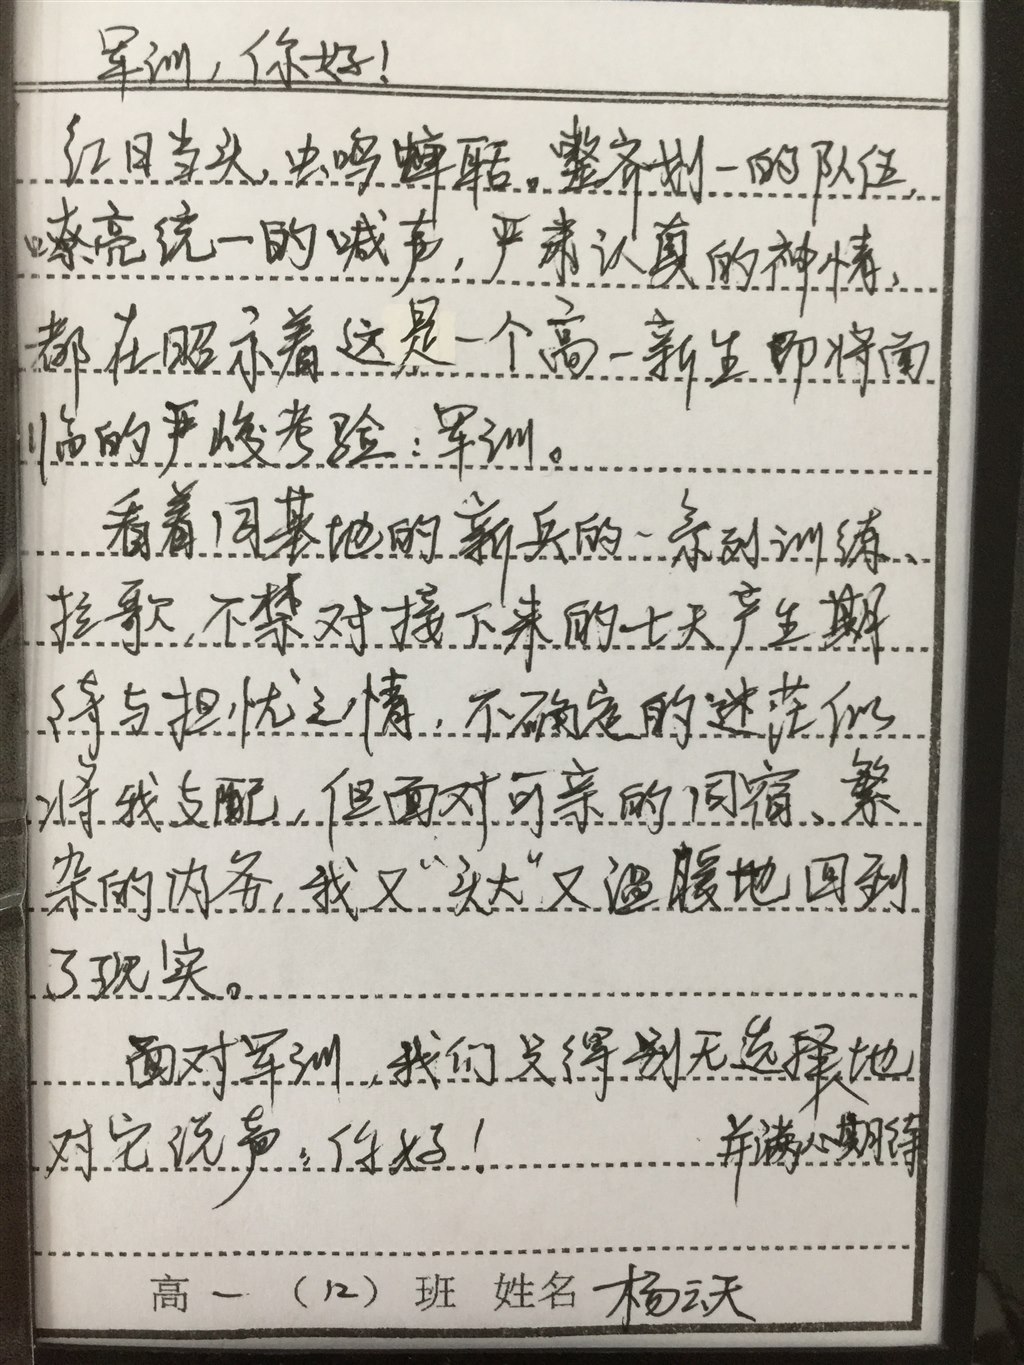 军训，你好！
红日当头，虫鸣蝉聒。整齐划一的队伍，
嘹亮统一的喊声，严肃认真的神情，
都在昭示着这是一个高一新生即将面
临的严峻考验：军训。
看着同基地的新兵的一系列训练、
拉歌，不禁对接下来的七天产生期
待与担忧之情，不确定的迷茫似
将我支配，但面对可亲的同宿、繁
杂的内务，我又“头大”又温暖地回到
了现实。
面对军训，我们只得别无选择地
并满心期待
对它说声：你好！
高一（12）班 姓名 杨云天